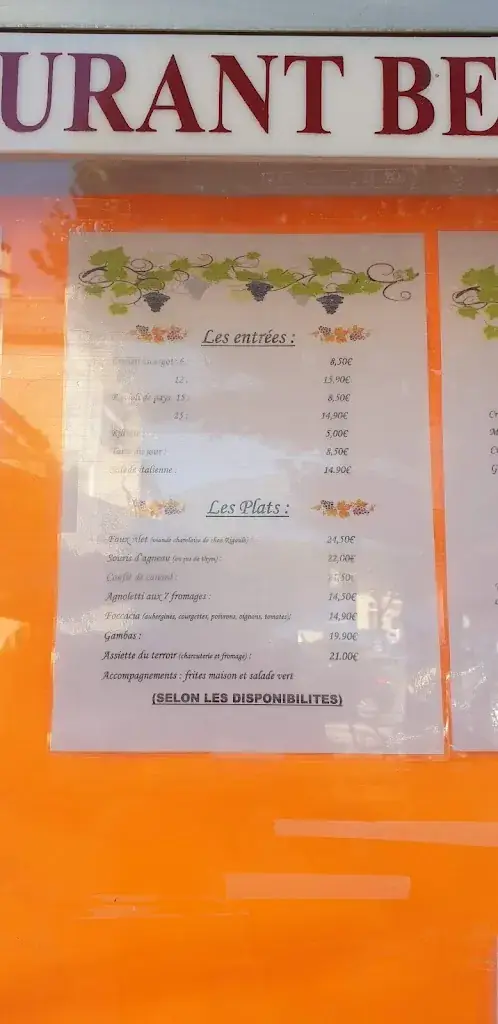 URANT BE
Les entrées :
6: 8,50€
12 : 15,90€
de pays 15 : 8,50€
25 : 14,90€
5,00€
Tarte du jour : 8,50€
Salade italienne : 14.90€
Les Plats :
Faux filet (viande charolaise de chez : 24,50€
Souris d'agneau (au jus de thym) : 22,00€
Confit de canard :
Agnoletti aux 7 fromages : 14,50€
Foccacia (aubergines, courgettes, poivrons, oignons, tomates): 14,90€
Gambas : 19.90€
Assiette du terroir (charcuterie et fromage) : 21.00€
Accompagnements : frites maison et salade vert
(SELON LES DISPONIBILITES)